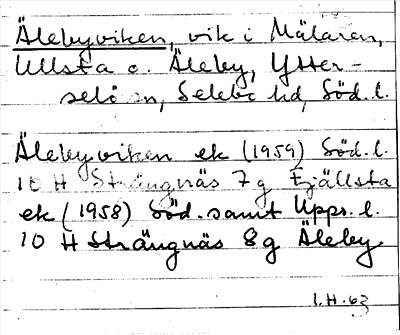 Älebyviken, vik i Mälaren,
Ullsta o. Äleby, Ytter-
selö sn, Selebo hd, Söd. l.
Älebyviken ek (1959) Söd. l.
10 H Strängnäs 7g Fjällsta
ek (1958) Söd. samt Upps. l.
10 H Strängnäs 8g Äleby
I.H. 63